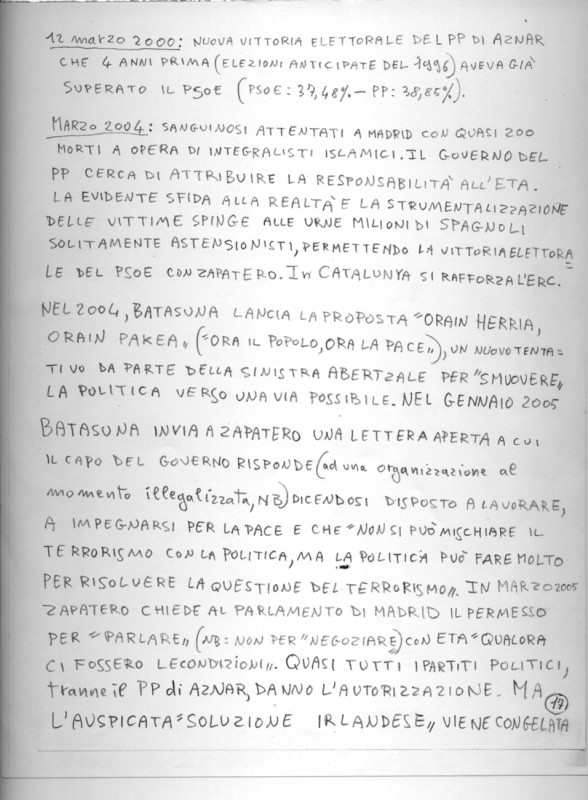 12 marzo 2000: NUOVA VITTORIA ELETTORALE DEL PP DI AZNAR
CHE 4 ANNI PRIMA (ELEZIONI ANTICIPATE DEL 1996) AVEVA GIÀ
SUPERATO IL PSOE (PSOE: 37,48% – PP: 38,85%).
MARZO 2004: SANGUINOSI ATTENTATI A MADRID CON QUASI 200
MORTI A OPERA DI INTEGRALISTI ISLAMICI. IL GOVERNO DEL
PP CERCA DI ATTRIBUIRE LA RESPONSABILITÀ ALL'ETA.
LA EVIDENTE SFIDA ALLA REALTÀ E LA STRUMENTALIZZAZIONE
DELLE VITTIME SPINGE ALLE URNE MILIONI DI SPAGNOLI
SOLITAMENTE ASTENSIONISTI, PERMETTENDO LA VITTORIA ELETTORA=
LE DEL PSOE CON ZAPATERO. In CATALUNYA SI RAFFORZA L'ERC.
NEL 2004, BATASUNA LANCIA LA PROPOSTA "ORAIN HERRIA,
ORAIN PAKEA" ("ORA IL POPOLO, ORA LA PACE"), UN NUOVO TENTA=
TIVO DA PARTE DELLA SINISTRA ABERTZALE PER "SMUOVERE"
LA POLITICA VERSO UNA VIA POSSIBILE. NEL GENNAIO 2005
BATASUNA INVIA A ZAPATERO UNA LETTERA APERTA A CUI
IL CAPO DEL GOVERNO RISPONDE (ad una organizzazione al
momento illegalizzata, NB) DICENDOSI DISPOSTO A LAVORARE,
A IMPEGNARSI PER LA PACE E CHE "NON SI PUÒ MISCHIARE IL
TERRORISMO CON LA POLITICA, MA LA POLITICA PUÒ FARE MOLTO
PER RISOLVERE LA QUESTIONE DEL TERRORISMO". IN MARZO 2005
ZAPATERO CHIEDE AL PARLAMENTO DI MADRID IL PERMESSO
PER "PARLARE" (NB: NON PER "NEGOZIARE") CON ETA "QUALORA
CI FOSSERO LE CONDIZIONI". QUASI TUTTI I PARTITI POLITICI,
tranne il PP di AZNAR, DANNO L'AUTORIZZAZIONE. MA
L'AUSPICATA "SOLUZIONE IRLANDESE" VIENE CONGELATA
17